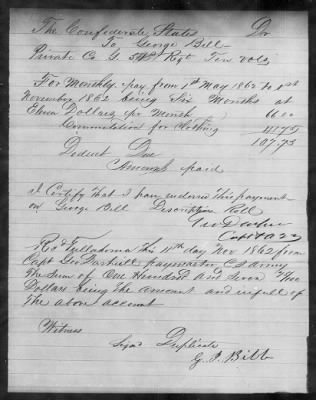 The Confederate States Dr
To George Bill
Private Co G 5th Regt Ten vols
For Monthly pay from 1st May 1862 to 1st
November 1862 being Six Months at
Eleven Dollars per Month 66.00
Commutation for Clothing 41.75
107.75
Deduct Due
Amount paid
I Certify that I have endorsed this payment
on George Bill Description Roll
Capt
Recd Tullahoma this 11th day Nov 1862 from
Capt Geo paymaster C S army
The Sum of One Hundred And Seven 75/100
Dollars being the amount and in full of
The above account
Witness
Signed Duplicate
G. J. Bill